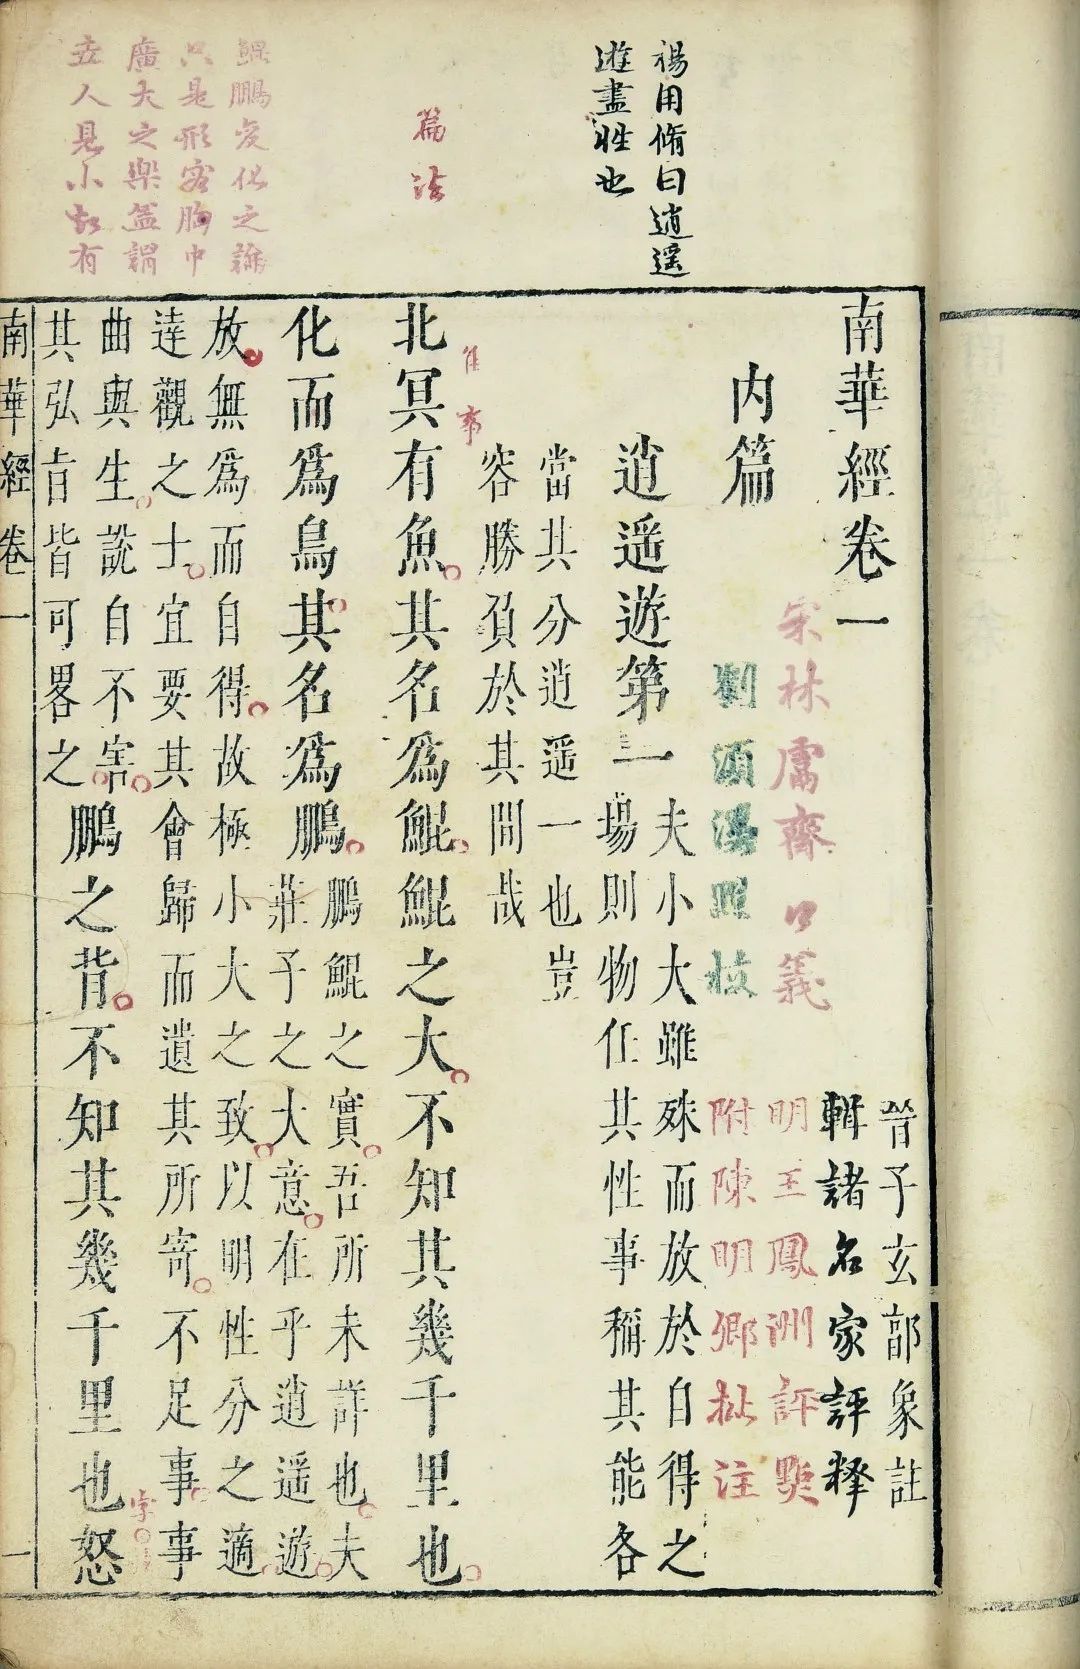 楊用脩曰逍遥
遊盡性也
篇法
鯤鵬變化之論
只是形容胸中
廣大之樂蓋謂
世人見小故有
南華經卷一
晉子玄郭象註
輯諸名家評釋
宋林鬳齋口義
明王鳳洲評點
内篇
劉須溪點校
附陳明卿批注
逍遥遊第一
夫小大雖殊而放於自得之
場則物任其性事稱其能各
當其分逍遥一也豈
容勝負於其間哉
北冥有魚其名爲鯤鯤之大不知其幾千里也
化而爲鳥其名爲鵬
鵬鯤之實吾所未詳也夫
莊子之大意在乎逍遥遊
放無爲而自得故極小大之致以明性分之適
達觀之士宜要其會歸而遺其所寄不足事事
曲與生說自不害
其弘旨皆可畧之
鵬之背不知其幾千里也怒
南華經卷一
一